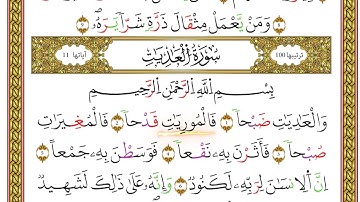 وَمَنْ يَعْمَلْ مِثْقَالَ ذَرَّةٍ شَرًّا يَرَهُ
ترتيبها 100 سُورَةُ الْعَادِيَاتِ آياتها 11
بِسْمِ اللَّهِ الرَّحْمَٰنِ الرَّحِيمِ
وَالْعَٰدِيَٰتِ ضَبْحًا ۝١ فَالْمُورِيَٰتِ قَدْحًا ۝٢ فَالْمُغِيرَٰتِ
صُبْحًا ۝٣ فَأَثَرْنَ بِهِۦ نَقْعًا ۝٤ فَوَسَطْنَ بِهِۦ جَمْعًا ۝٥
إِنَّ الْإِنسَٰنَ لِرَبِّهِۦ لَكَنُودٌ ۝٦ وَإِنَّهُۥ عَلَىٰ ذَٰلِكَ لَشَهِيدٌ